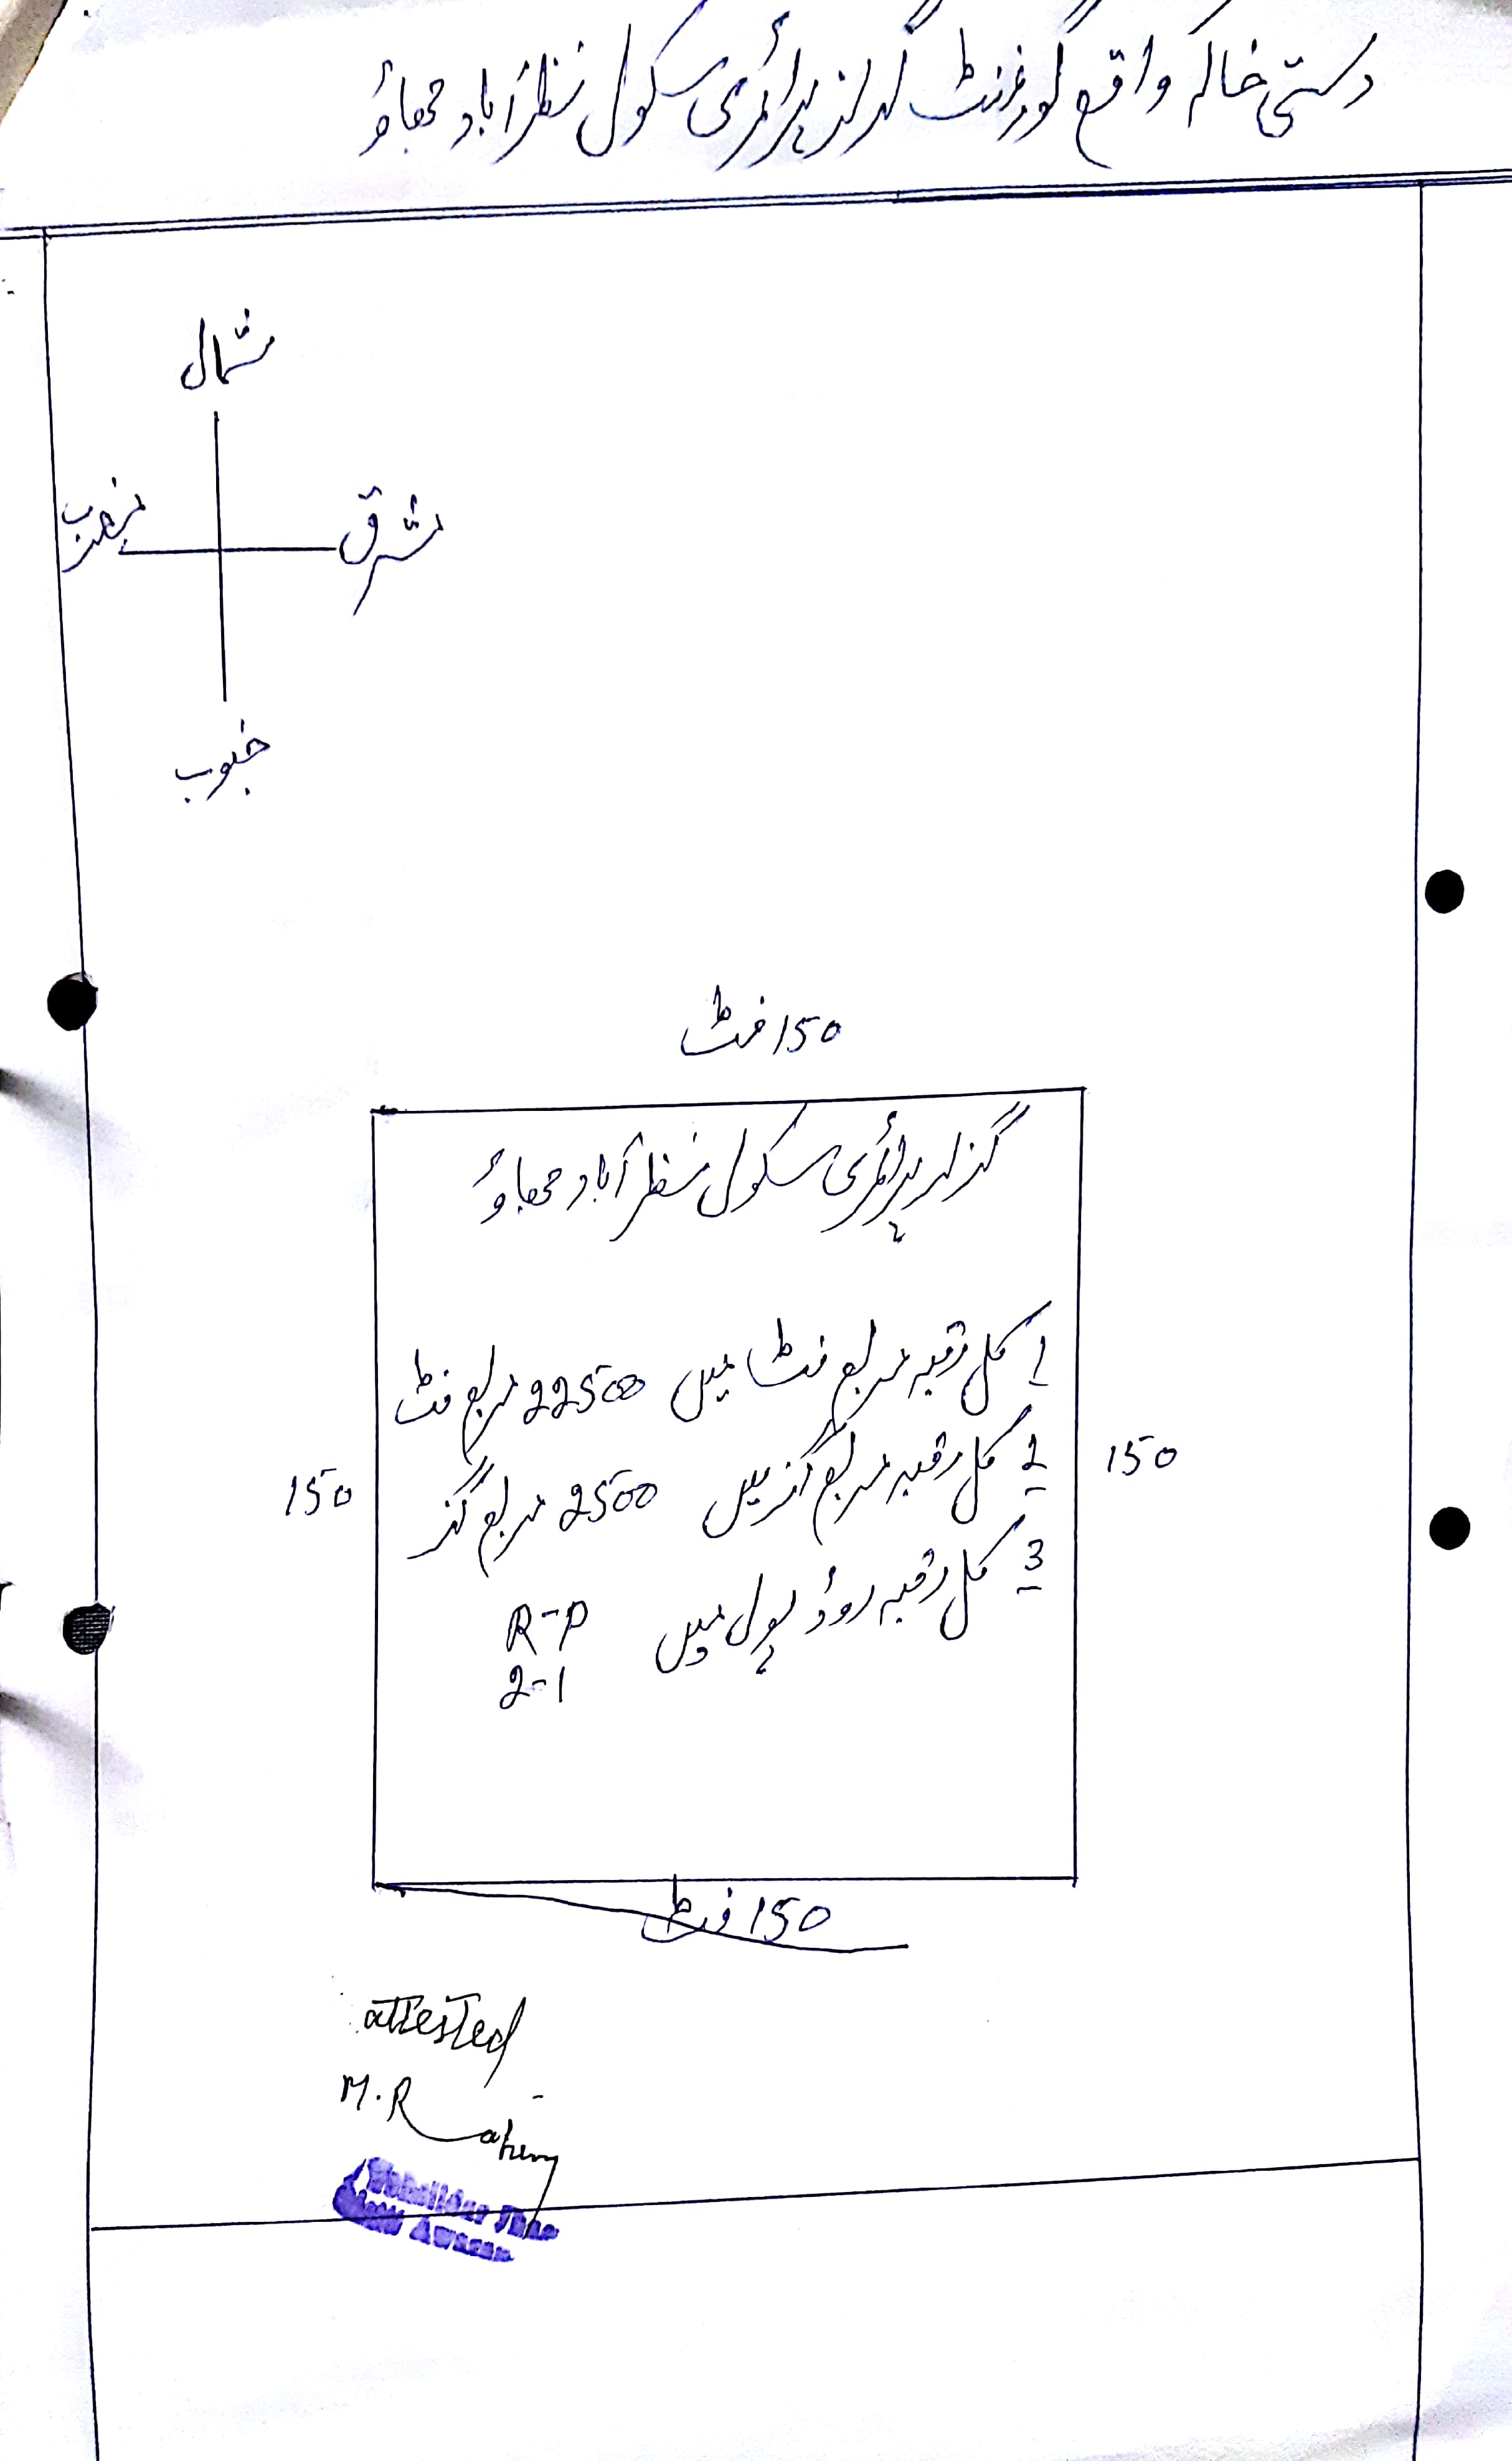 دستی خاکہ واقع گورنمنٹ گرلز پرائمری سکول نظر آباد جھاؤ
شمال
مغرب
مشرق
جنوب
150 فٹ
گرلز پرائمری سکول نظر آباد جھاؤ
1 کل رقبہ مربع فٹ میں 22500 مربع فٹ
2 کل رقبہ مربع گز میں 2500 مربع گز
3 کل رقبہ روڈ پول میں R-P
2-1
150
150
150 فٹ
attested
M. Rahim
Awaran